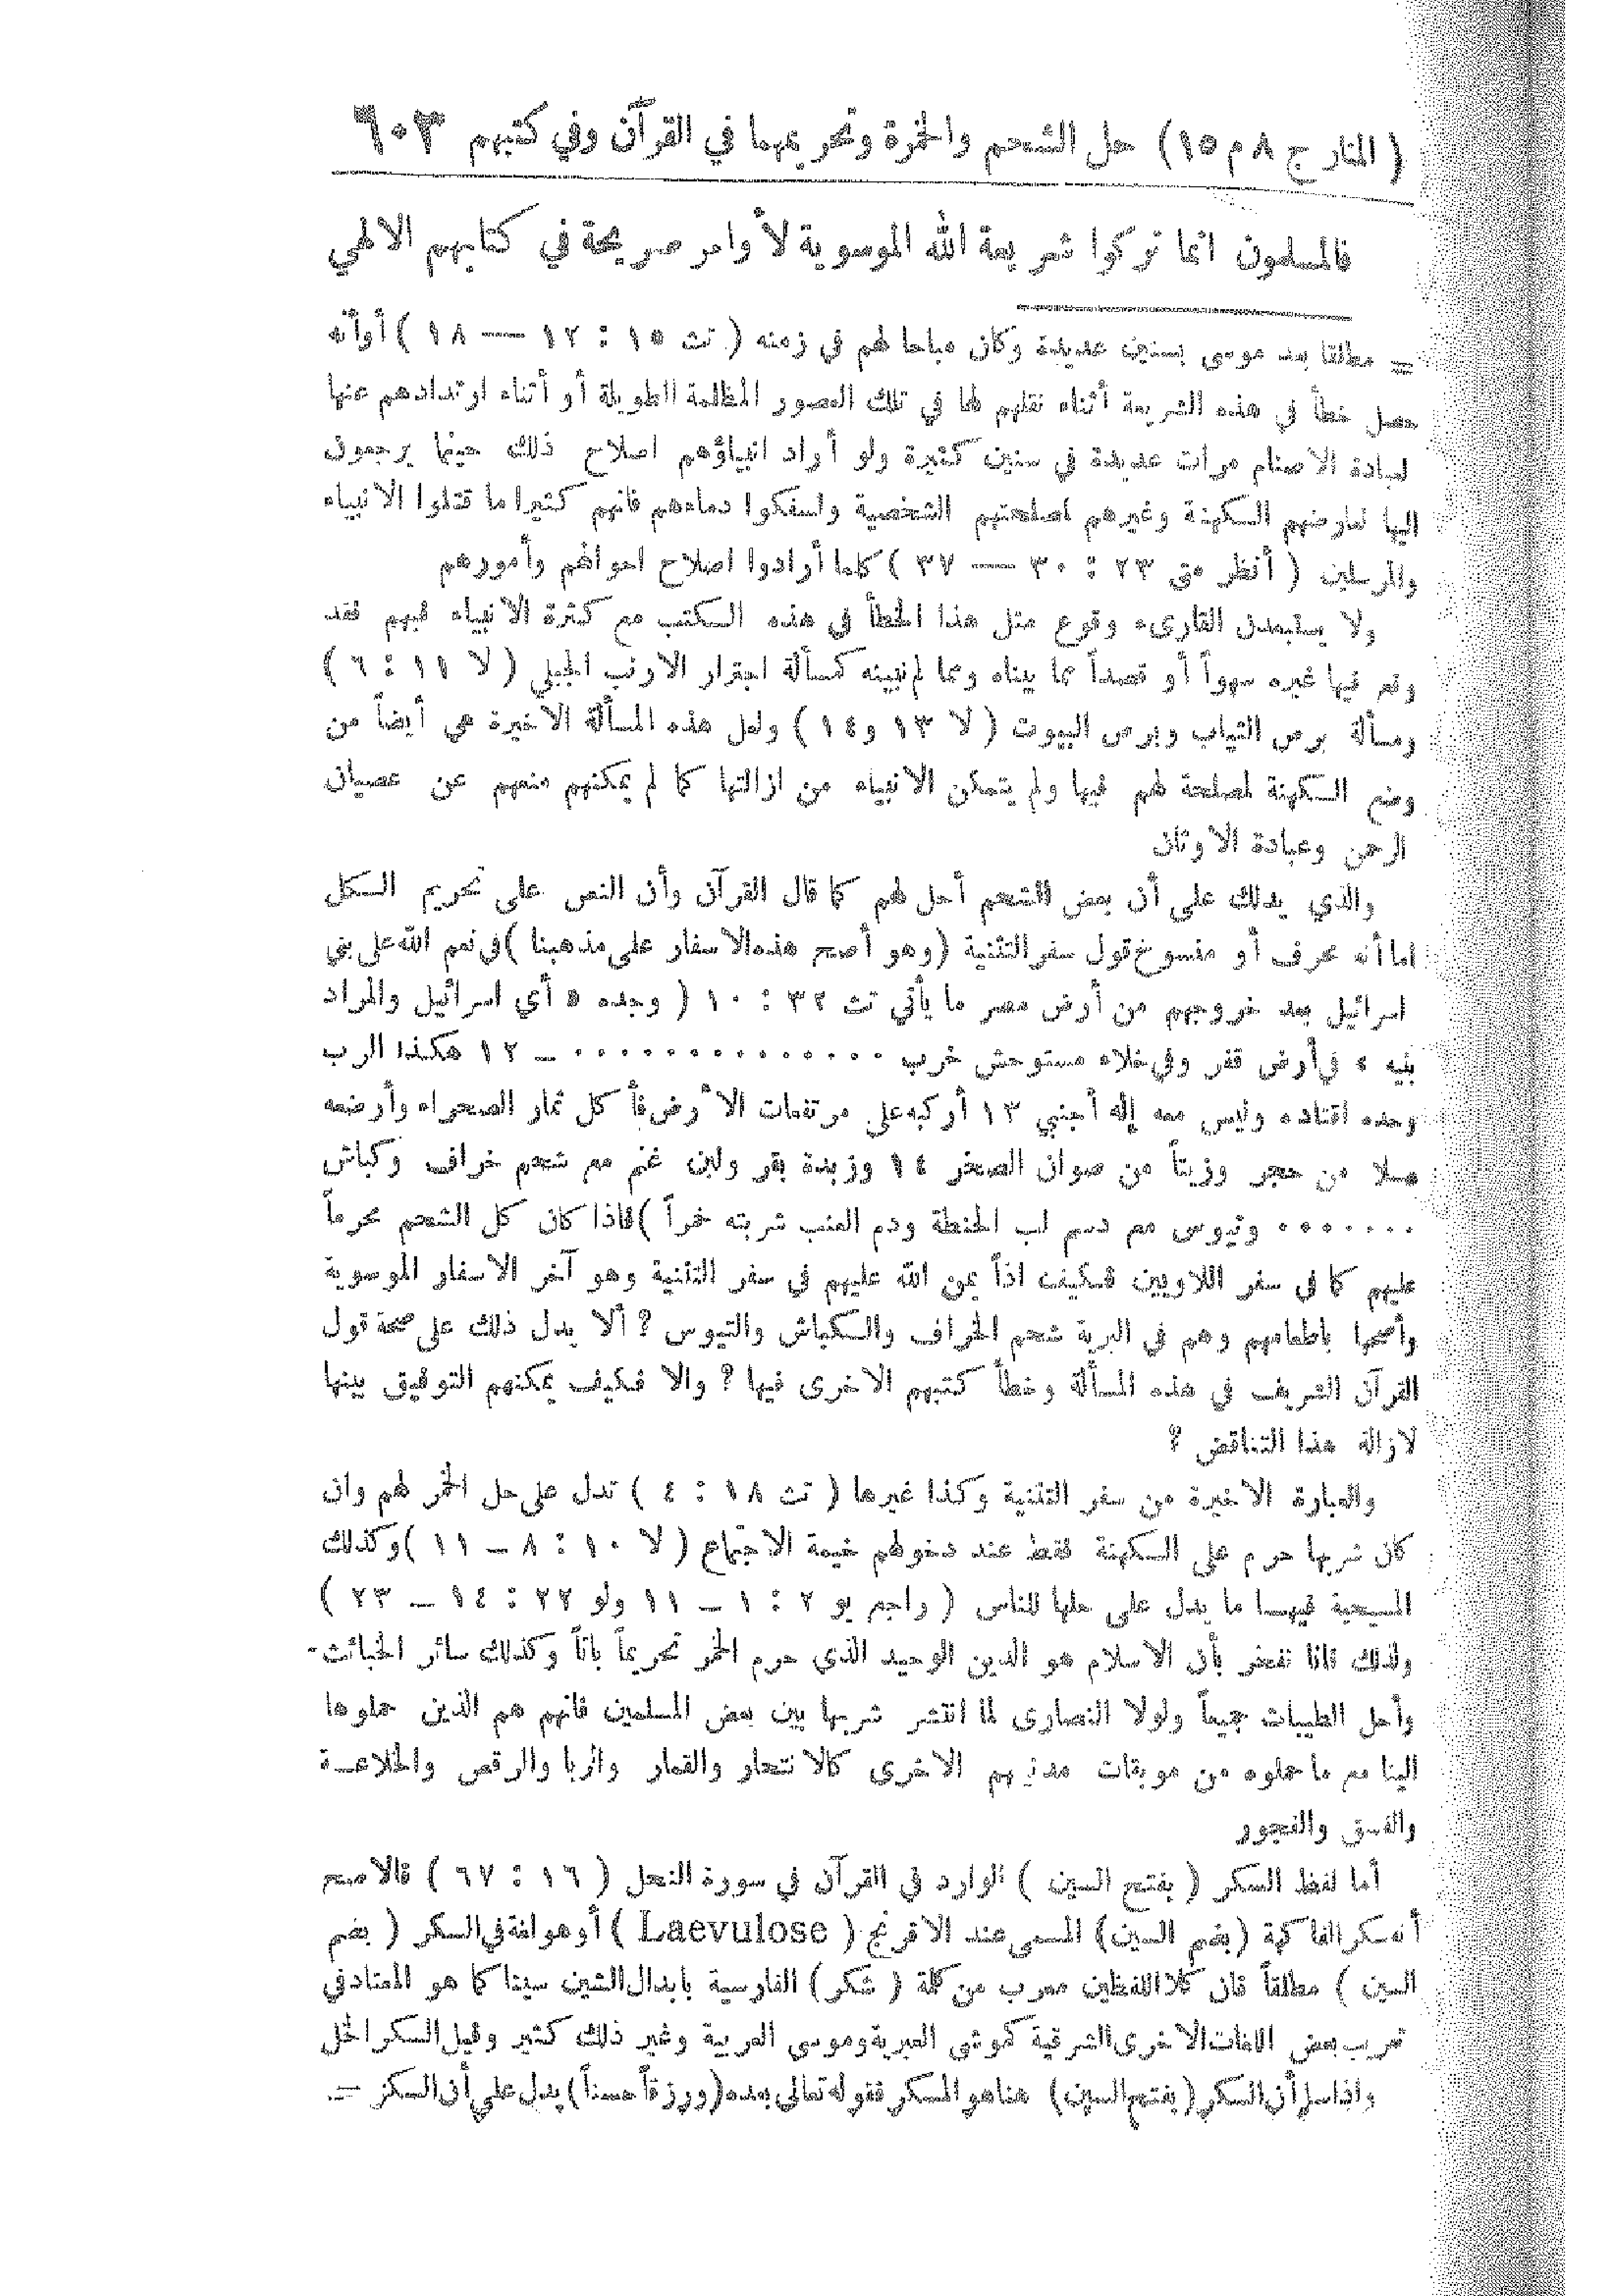 ( المنار ج ٨ م ١٥ ) حل الشحم والخمرة وتحريمهما في القرآن وفي كتبهم ٦٠٣
فالمسلمون انما تركوا شريعة الله الموسوية لأوامر صريحة في كتابهم الالهي
= مطلقا بعد موسى بسنين عديدة وكان مباحا لهم في زمنه ( تث ١٥ : ١٢ — ١٨ ) أو أنه
حصل خطأ في هذه الشريعة أثناء نقلهم لها في تلك العصور المظلمة الطويلة أو أثناء ارتدادهم عنها
لعبادة الاصنام مرات عديدة في سنين كثيرة ولو أراد انبياؤهم اصلاح ذلك حينما يرجعون
اليها لعارضهم الكهنة وغيرهم لمصلحتهم الشخصية ولسفكوا دماءهم فانهم كثيرا ما قتلوا الانبياء
والمرسلين ( أنظر مت ٢٣ : ٣٠ — ٣٧ ) كلما أرادوا اصلاح احوالهم وأمورهم
ولا يستبعدن القارىء وقوع مثل هذا الخطأ في هذه الكتب مع كثرة الانبياء فيهم فقد
وقع فيها غيره سهواً أو قصداً مما بيناه ومما لم نبينه كمسألة اجترار الارنب الجبلي ( لا ١١ : ٦ )
ومسألة برص الثياب وبرص البيوت ( لا ١٣ و١٤ ) ولعل هذه المسألة الاخيرة هي أيضاً من
وضع الكهنة لمصلحة لهم فيها ولم يتمكن الانبياء من ازالتها كما لم يمكنهم منعهم عن عصيان
الرحمن وعبادة الاوثان
والذي يدلك على أن بعض الشحم أحل لهم كما قال القرآن وأن النص على تحريم الكل
اما أنه محرف أو منسوخ قول سفر التثنية (وهو أصح هذه الاسفار على مذهبنا )في نعم الله على بني
اسرائيل بعد خروجهم من أرض مصر ما يأتي تث ٣٢ : ١٠ ( وجده » أي اسرائيل والمراد
بنيه « في أرض قفر وفي خلاء مستوحش خرب ٠٠٠٠٠٠٠٠٠٠٠٠٠٠ ـ ١٢ هكذا الرب
وحده اقتاده وليس معه إله أجنبي ١٣ أركبه على مرتفعات الأرض فأكل ثمار الصحراء وأرضعه
عسلا من حجر وزيتاً من صوان الصخر ١٤ وزبدة بقر ولبن غنم مع شحم خراف وكباش
٠٠٠٠٠٠٠ وتيوس مع دسم لب الحنطة ودم العنب شربته خمراً )فاذا كان كل الشحم محرماً
عليهم كما في سفر اللاويين فكيف اذاً يمن الله عليهم في سفر التثنية وهو آخر الاسفار الموسوية
وأصحها باطعامهم وهم في البرية شحم الخراف والكباش والتيوس ? ألا يدل ذلك على صحة قول
القرآن الشريف في هذه المسألة وخطأ كتبهم الاخرى فيها ? والا فكيف يمكنهم التوفيق بينها
لازالة هذا التناقض ?
والعبارة الاخيرة من سفر التثنية وكذا غيرها ( تث ١٨ : ٤ ) تدل على حل الخمر لهم وان
كان شربها حرم على الكهنة فقط عند دخولهم خيمة الاجتماع ( لا ١٠ : ٨ ـ ١١ )وكذلك
المسيحية فيها ما يدل على حلها للناس ( راجع يو ٢ : ١ ـ ١١ ولو ٢٢ : ١٤ ـ ٢٣ )
ولذلك فاننا نفتخر بأن الاسلام هو الدين الوحيد الذي حرم الخمر تحريماً باتاً وكذلك سائر الخبائث
وأحل الطيبات جميعاً ولولا النصارى لما انتشر شربها بين بعض المسلمين فانهم هم الذين حملوها
الينا مع ما حملوه من موبقات مدنيتهم الاخرى كالانتحار والقمار والربا والرقص والخلاعة
والفسق والفجور
أما لفظ السكر ( بفتح السين ) الوارد في القرآن في سورة النحل ( ١٦ : ٦٧ ) فالاصح
أنه سكر الفاكهة (بضم السين) المسمى عند الافرنج ( Laevulose ) أو هو لغة في السكر ( بضم
السين ) مطلقاً فان كلا اللفظين معرب من كلمة ( شكر ) الفارسية بابدال الشين سينا كما هو المعتاد في
تعريب بعض اللغات الاخرى الشرقية كموشى العبرية وموسى العربية وغير ذلك كثير وقيل السكر الخل
واذا سلم أن السكر (بفتح السين) هنا هو المسكر فقوله تعالى بعده (ورزقاً حسناً) يدل على أن السكر =